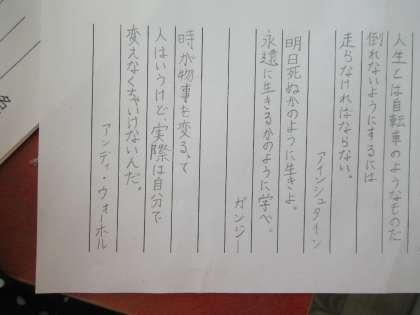 人生とは自転車のようなものだ
倒れないようにするには
走らなければならない。
アインシュタイン
明日死ぬかのように生きよ。
永遠に生きるかのように学べ。
ガンジー
時が物事を変えるって
人はいうけど、実際は自分で
変えなくちゃいけないんだ。
アンディ・ウォーホル
名